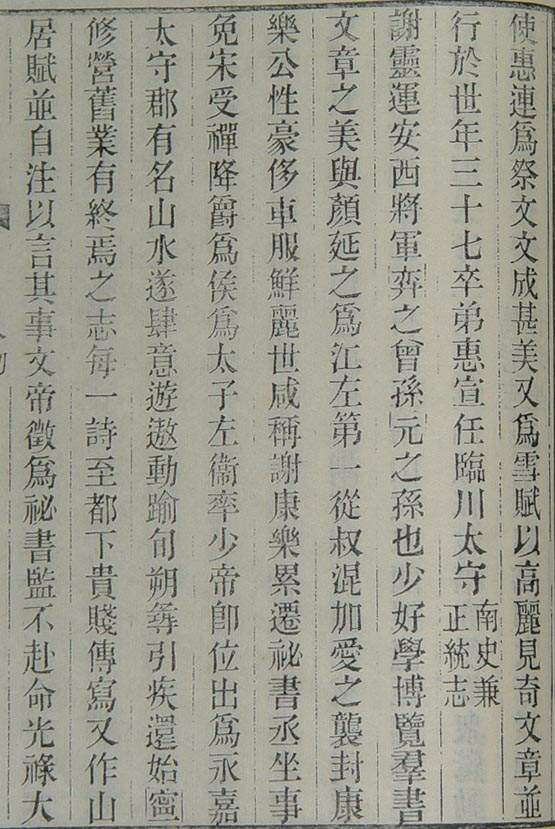 使惠連爲祭文文成甚美又爲雪賦以高麗見奇文章並
行於世年三十七卒弟惠宣任臨川太守南史兼正統志
謝靈運安西將軍弈之曾孫元之孫也少好學博覽羣書
文章之美與顏延之爲江左第一從叔混加愛之襲封康
樂公性豪侈車服鮮麗世咸稱謝康樂累遷祕書丞坐事
免宋受禪降爵爲侯爲太子左衞率少帝卽位出爲永嘉
太守郡有名山水遂肆意遊遨動踰旬朔尋引疾還始寧
修營舊業有終焉之志每一詩至都下貴賤傳寫又作山
居賦並自注以言其事文帝徵爲祕書監不赴命光祿大